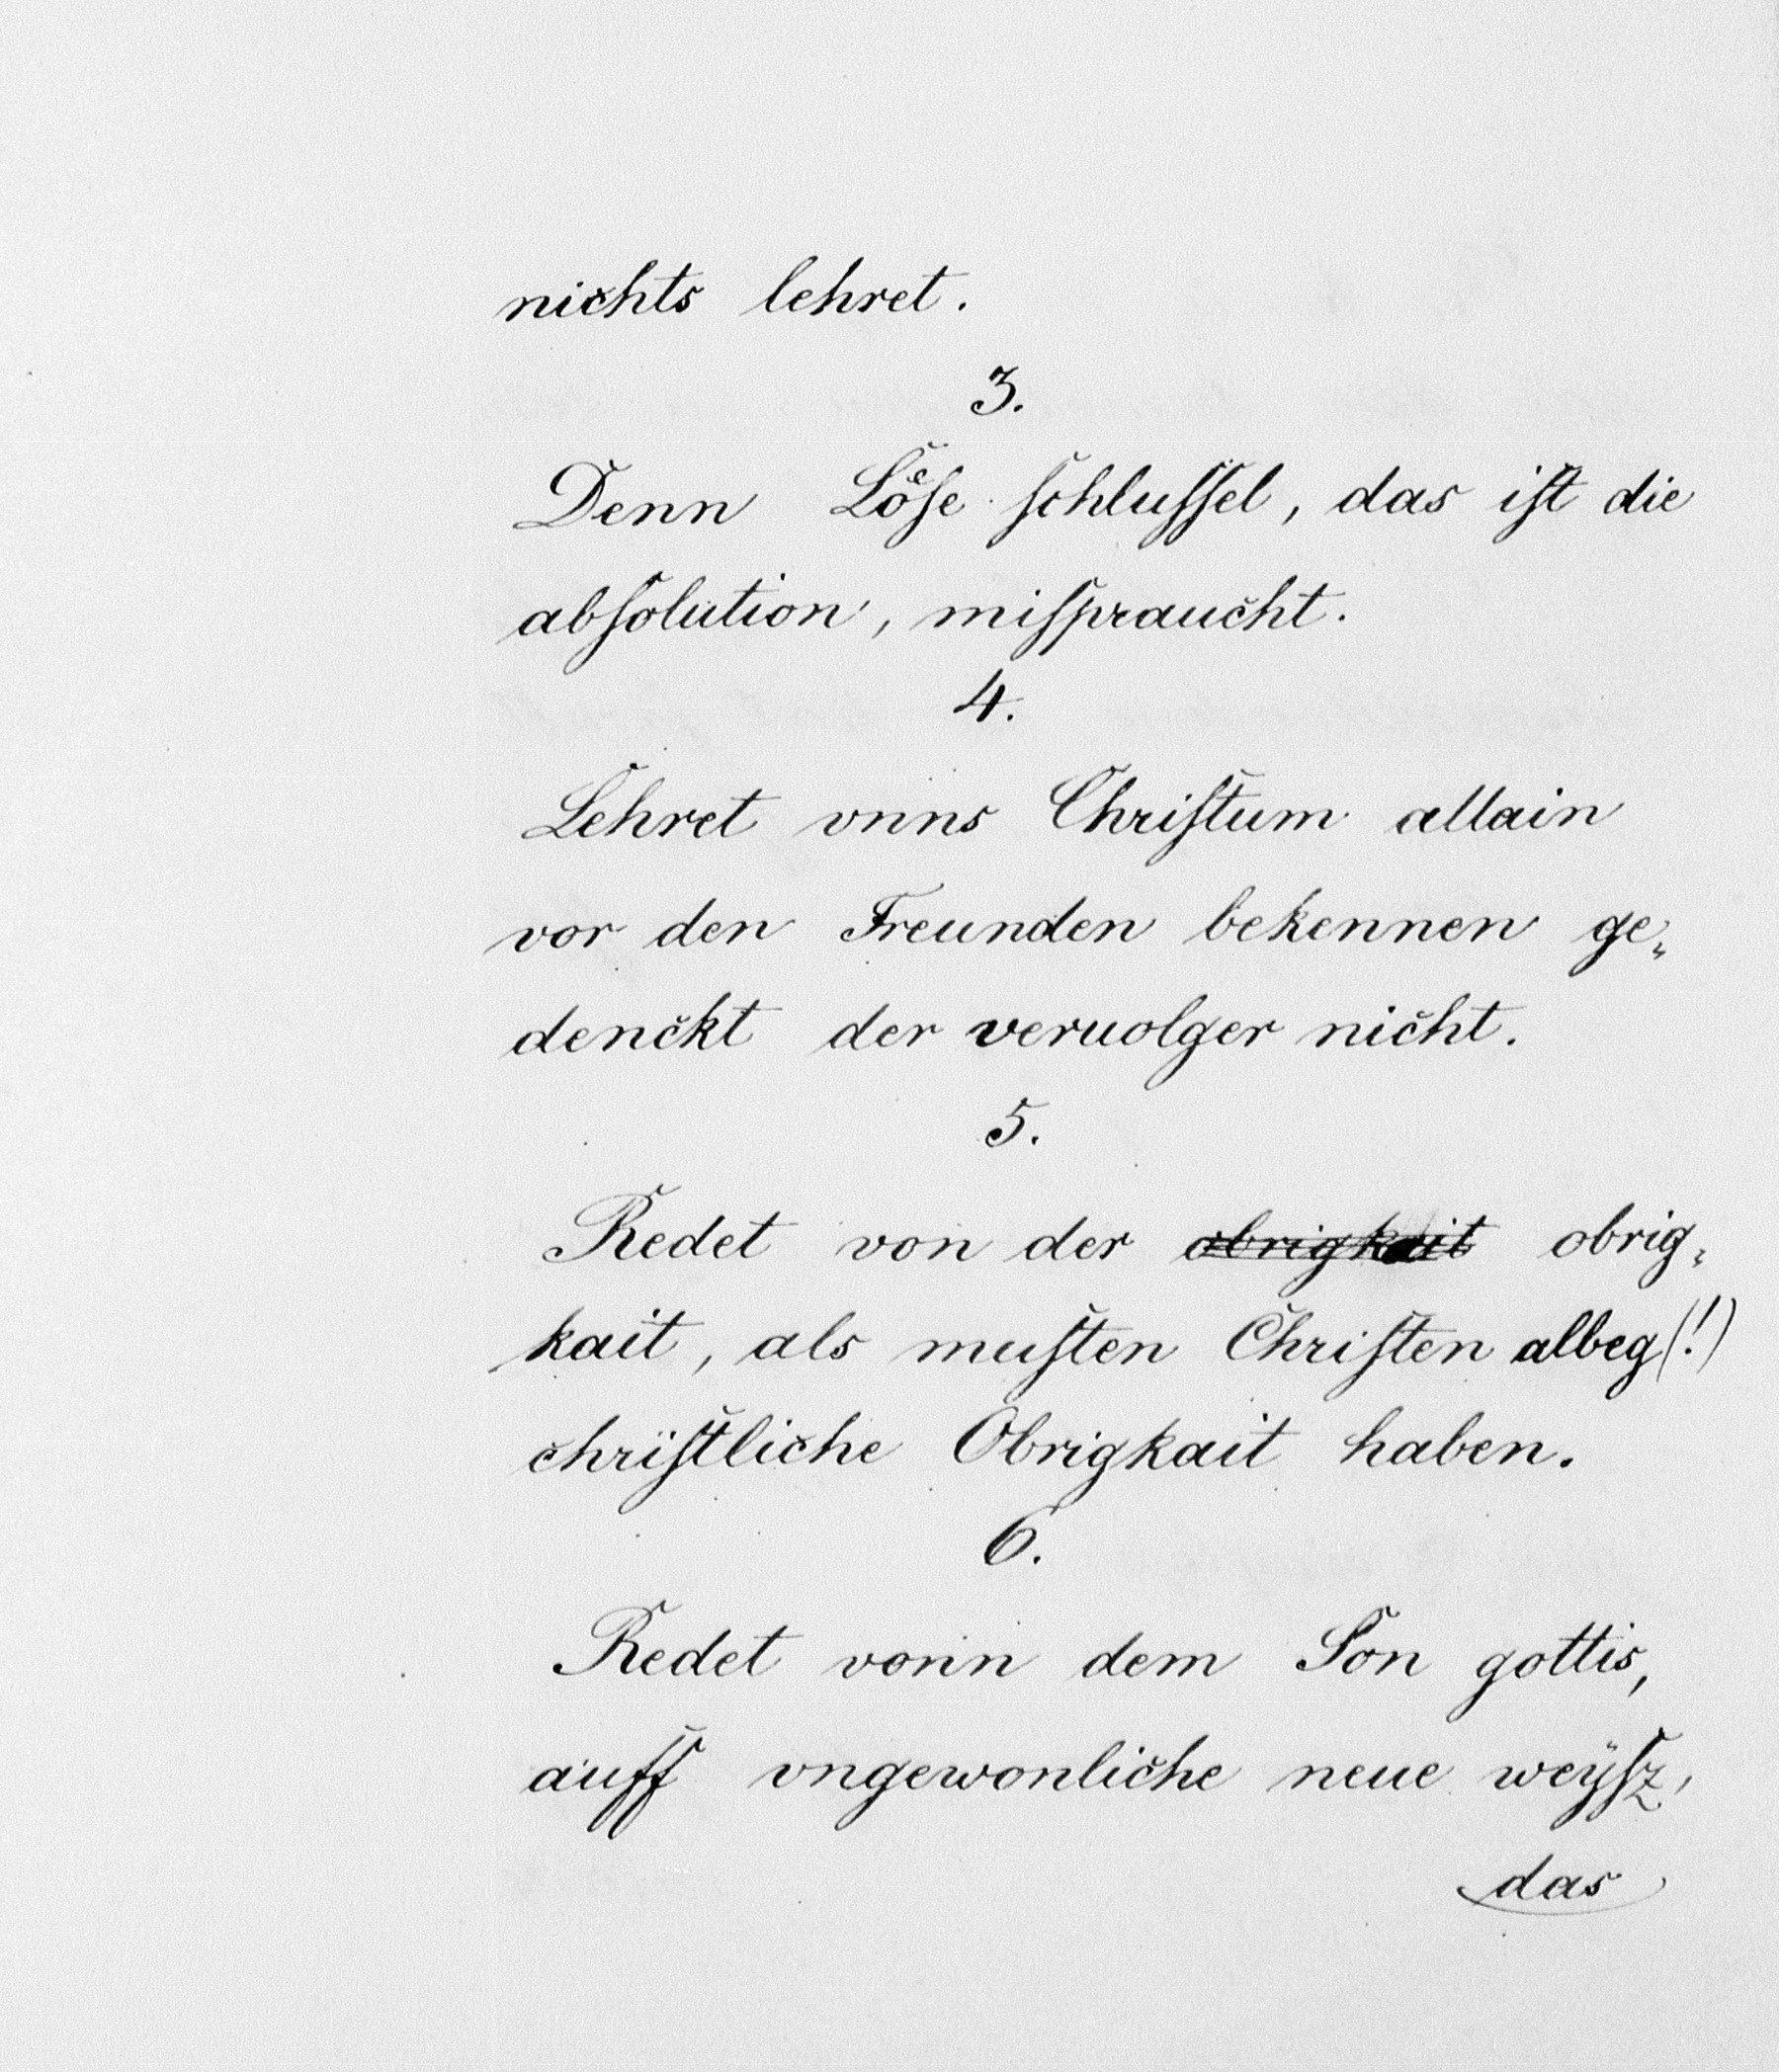 nichts lehret.
3.
Denn Löſe ſchluſſel, das iſt die
abſolution, miſpraucht.
4.
Lehret vnns Chriſtum allain
vor den Freunden bekennen ge„
denckt der veruolger nicht.
5.
Redet von der ~~obrigkait~~ obrig„
kait, als muſten Chriſten albeg (!)
chriſtliche Obrigkait haben.
6.
Redet vonn dem Son gottis,
auff vngewonliche neue weÿſz,
das